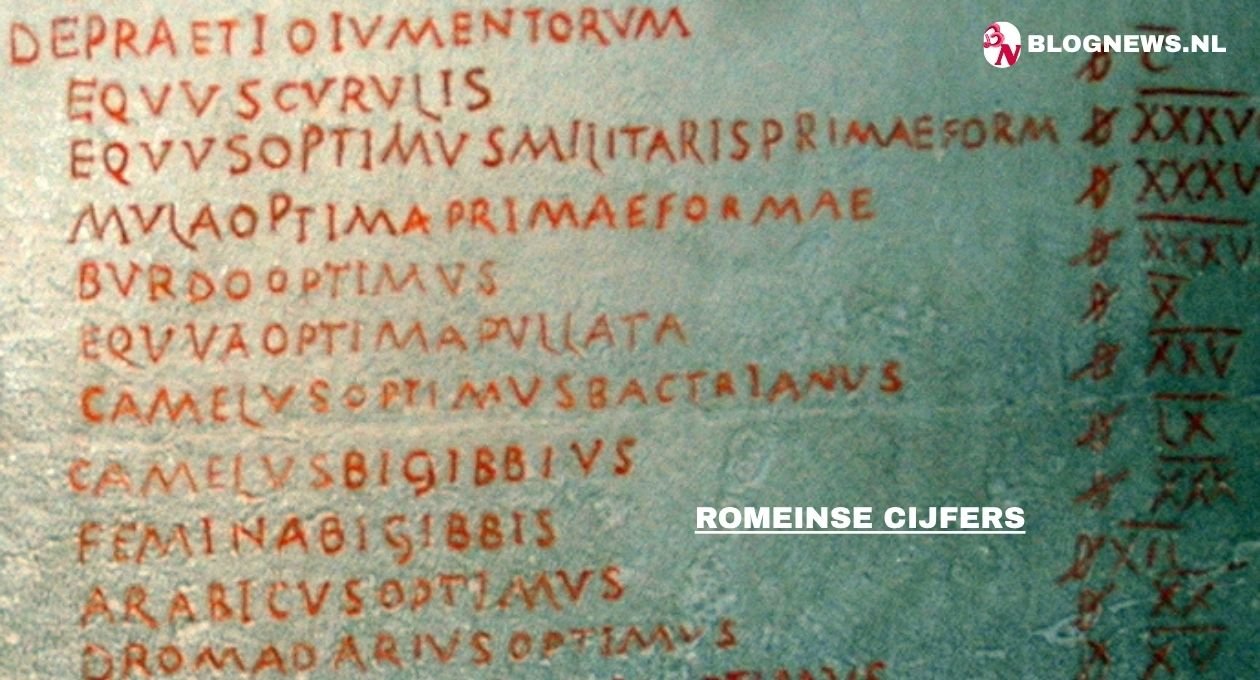 BLOGNEWS.NL
DEPRAETIOIVMENTORVM
EQVVSCVRVLIS C
EQVVSOPTIMVSMILITARISPRIMAEFORM XXXV
MVLAOPTIMAPRIMAEFORMAE XXXV
BVRDOOPTIMVS XXXV
EQVVAOPTIMAPVLLATA X
CAMELVSOPTIMVSBACTRIANVS XXV
CAMELVSBIGIBBIVS LX
FEMINABIGIBBIS XXX
ARABICVSOPTIMVS
DROMADARIVSOPTIMVS XX
XV
ROMEINSE CIJFERS